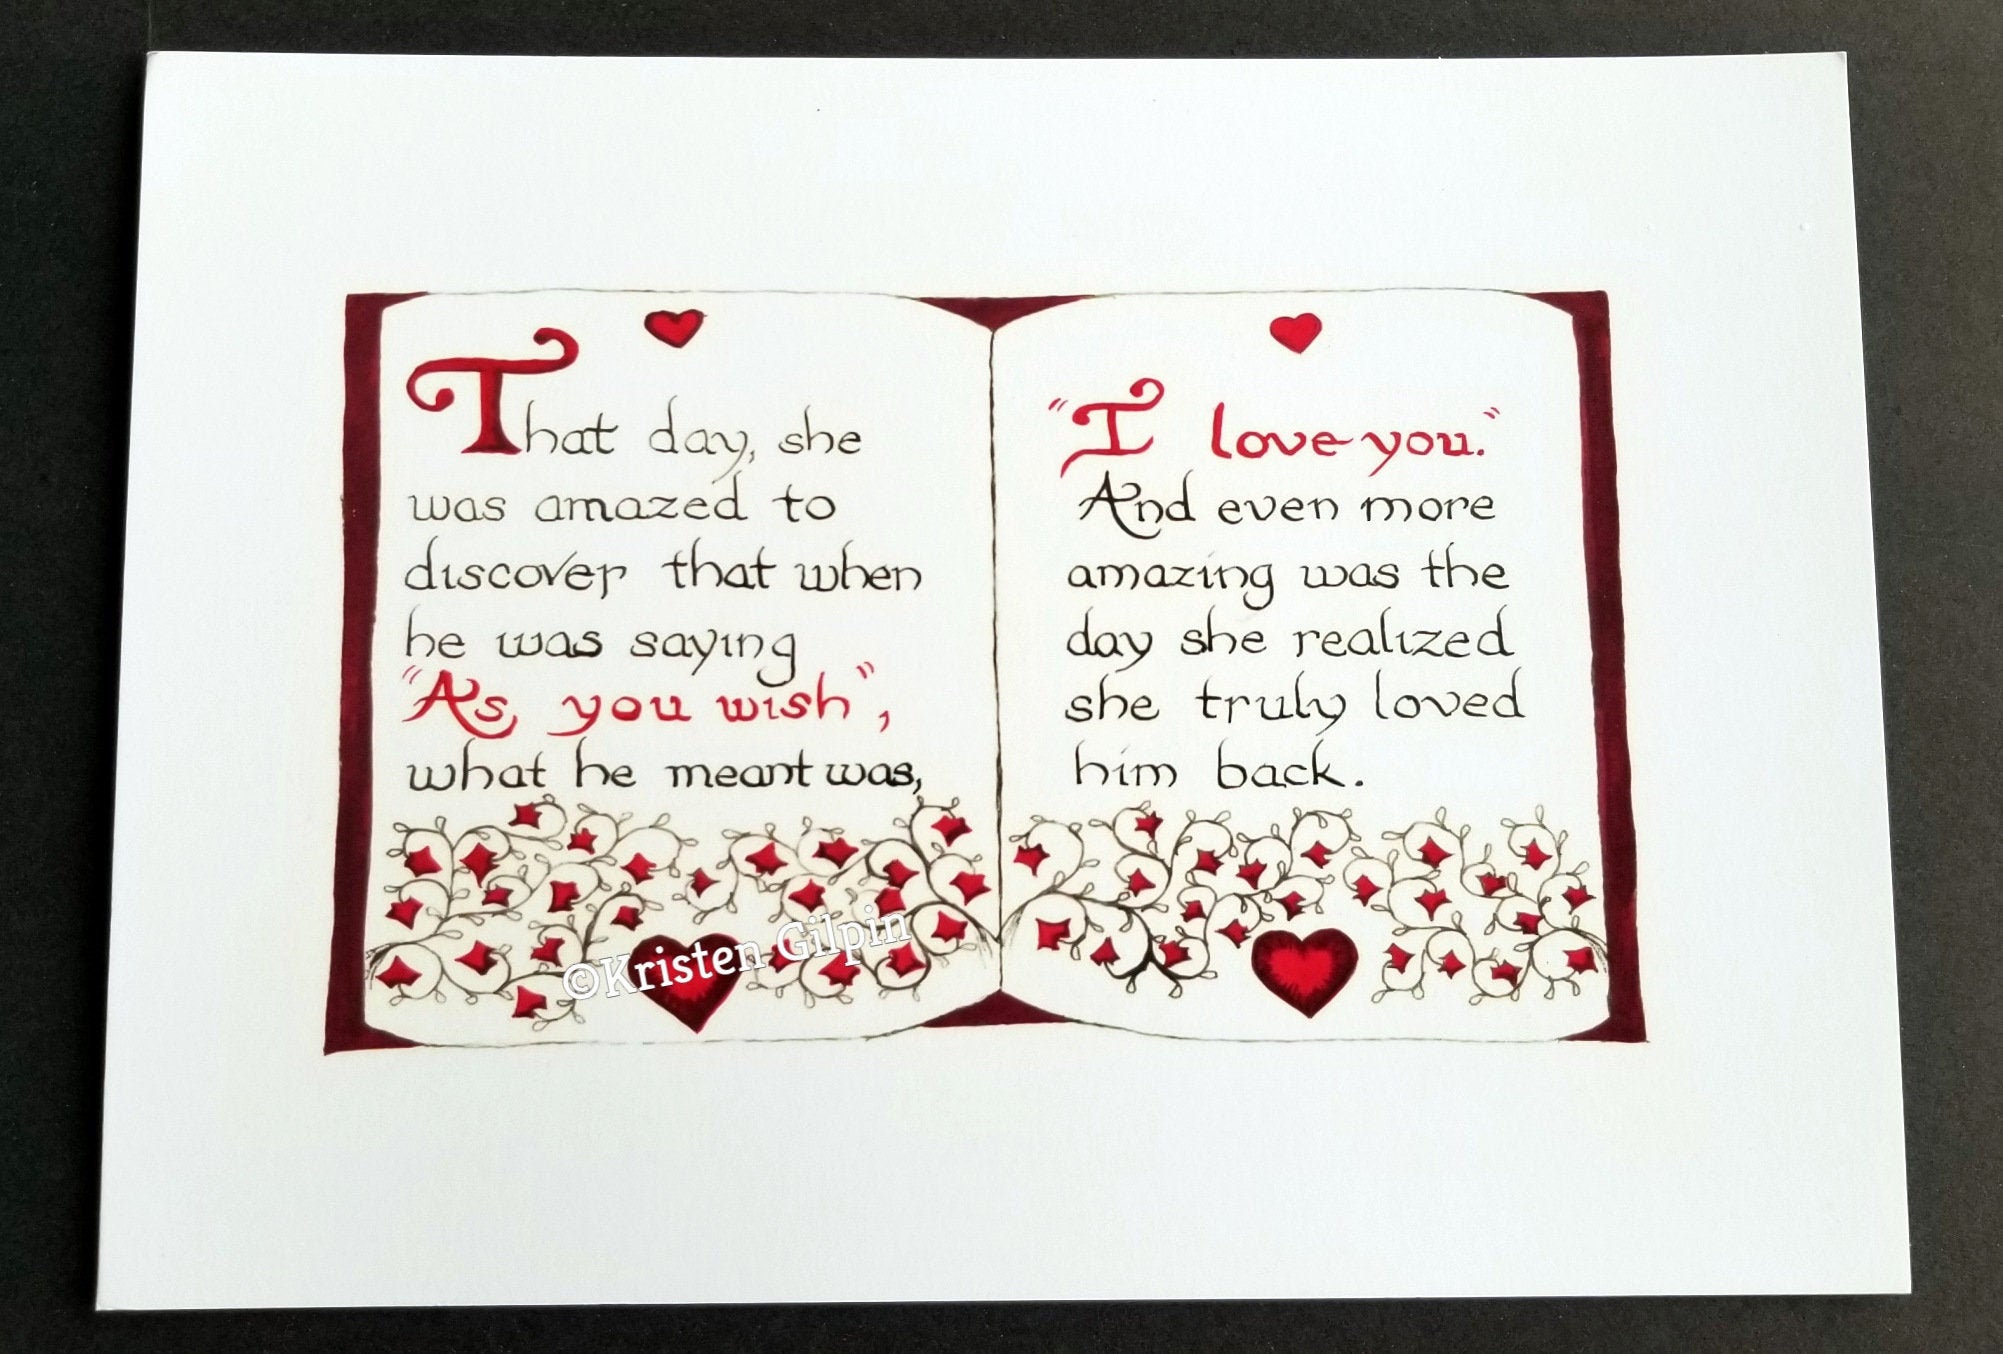 That day, she
was amazed to
discover that when
he was saying
"As you wish",
what he meant was,
"I love you."
And even more
amazing was the
day she realized
she truly loved
him back.
©Kristen Gilpin